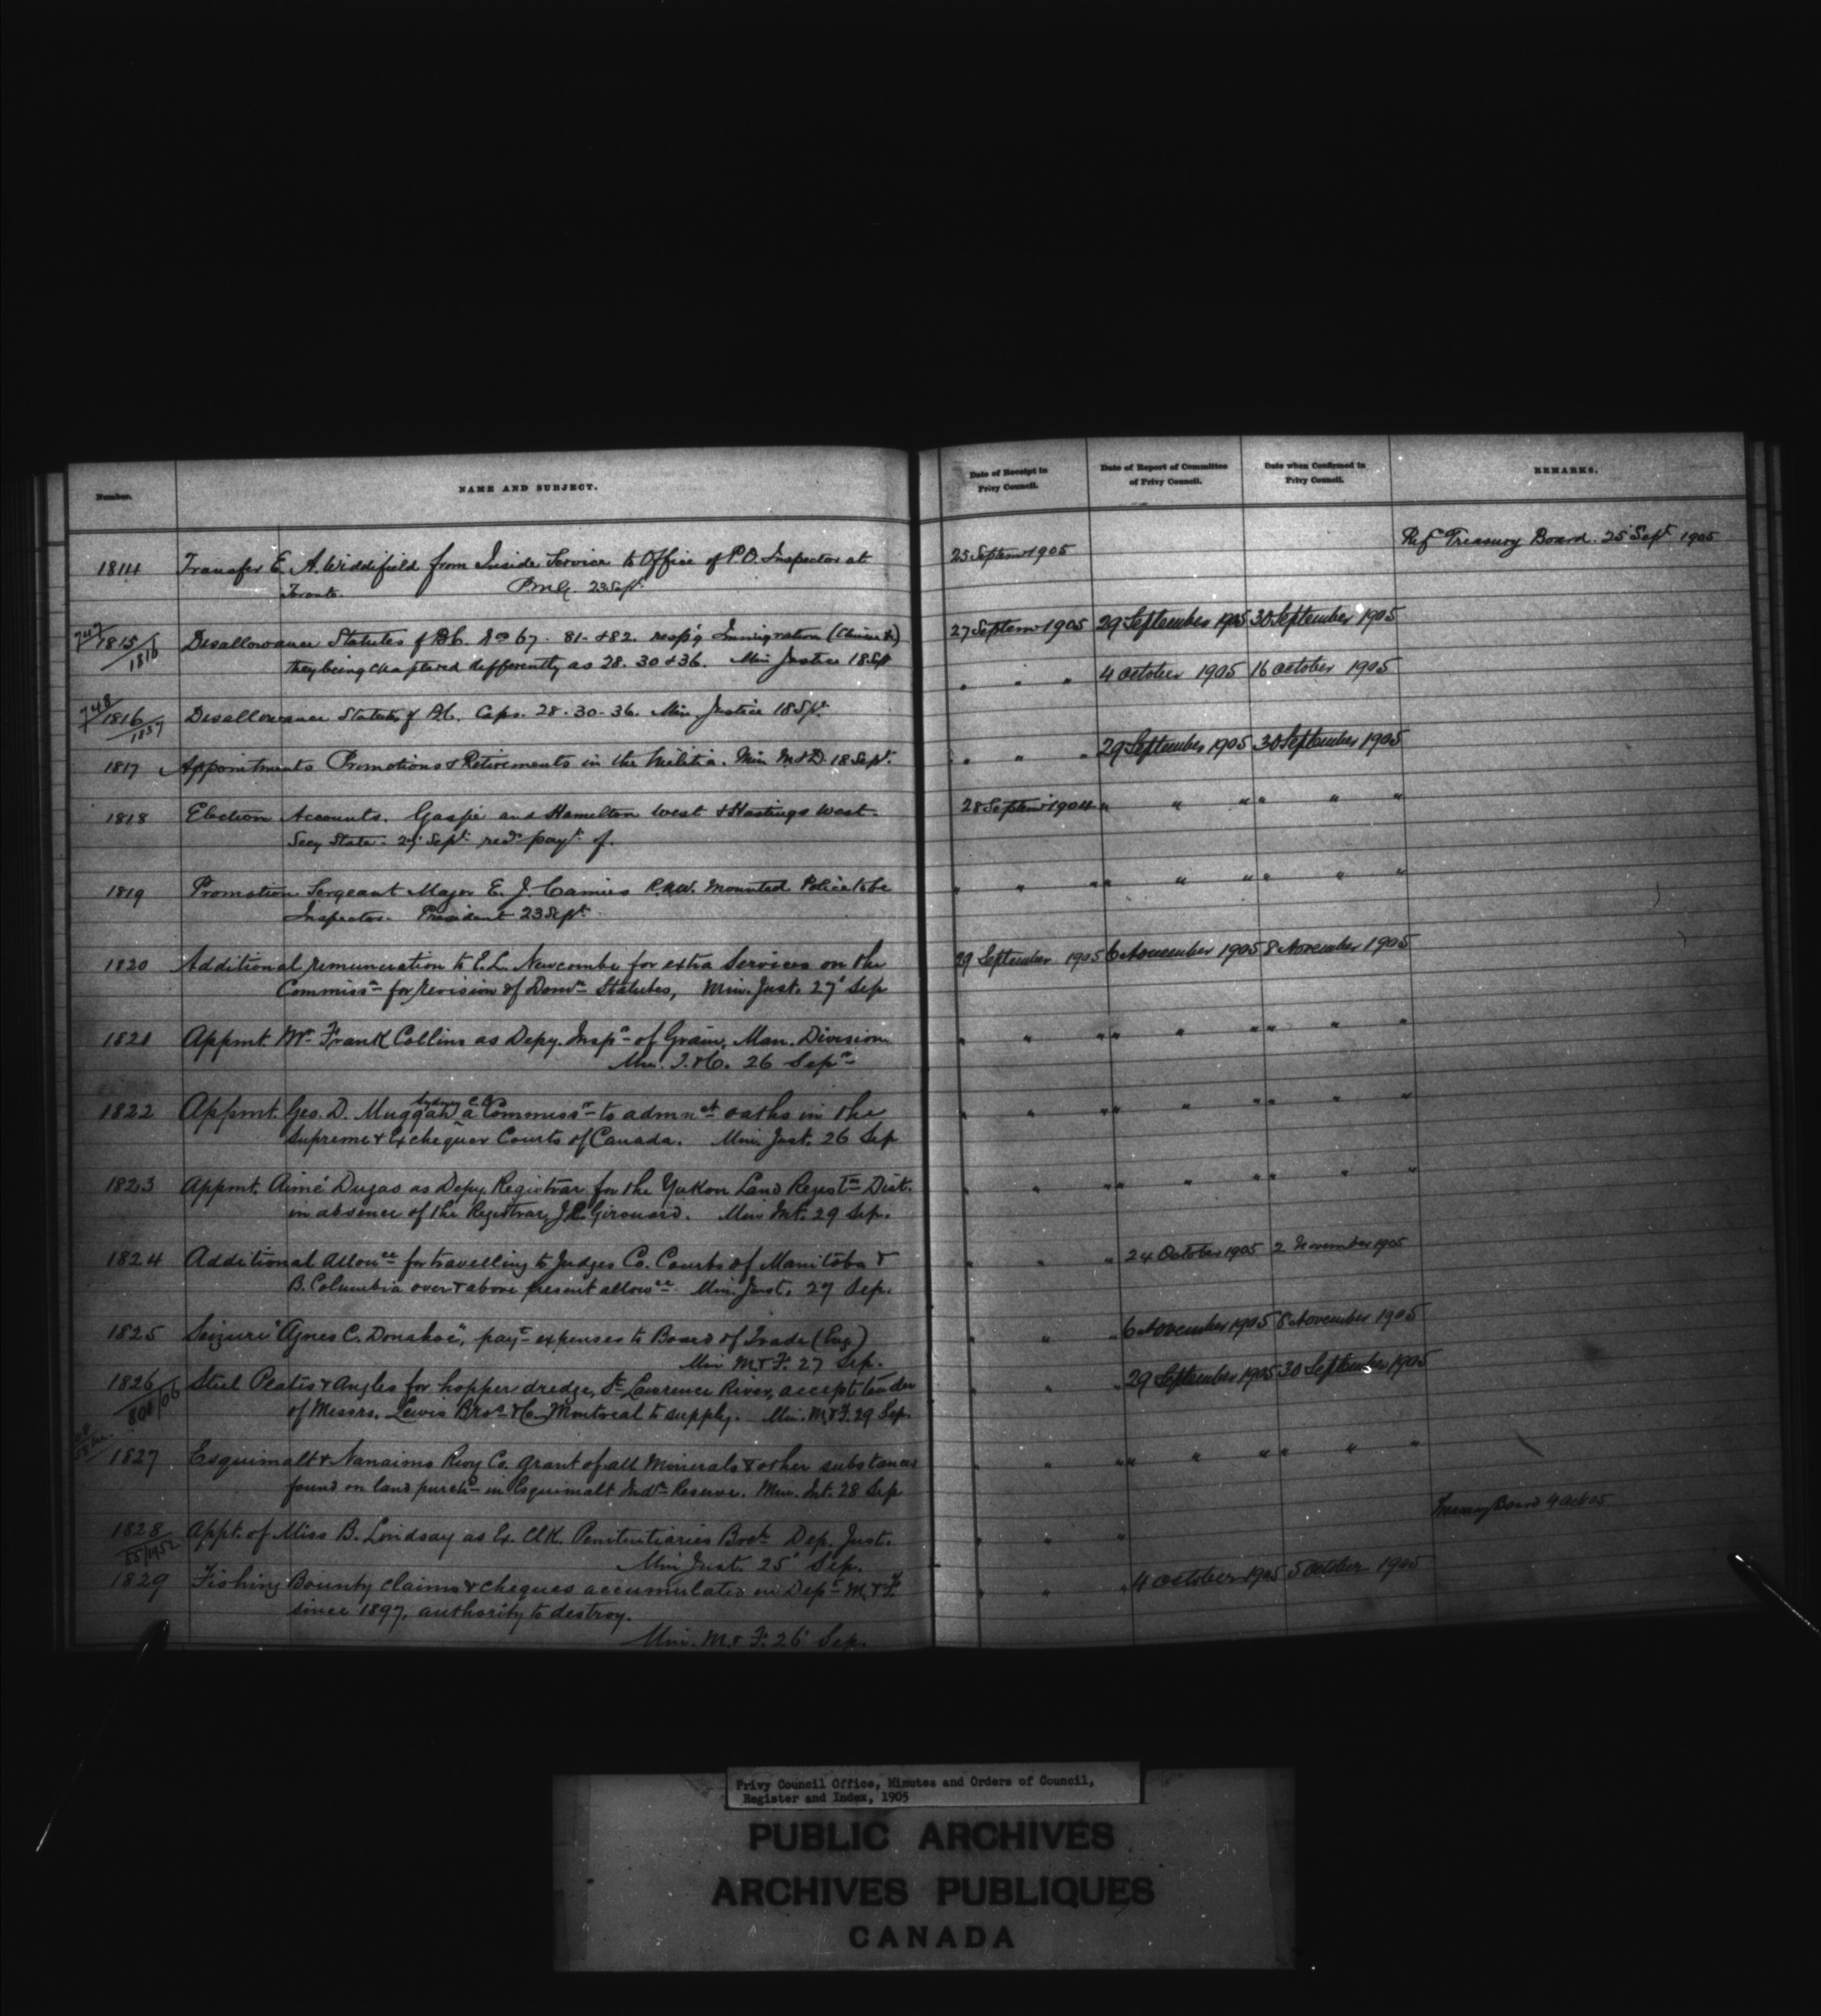 Number.
NAME AND SUBJECT.
Date of Receipt in Privy Council.
Date of Report of Committee of Privy Council.
Date when Confirmed in Privy Council.
REMARKS.
1814 Transfer E. A. Widdifield from Inside Service to Office of P.O. Inspector at 25 Septem 1905 Ref Treasury Board. 25 Sept 1905
Toronto. PMG. 23 Sept
747/1815/1816 Disallowance Statutes of B.C. Nos 67. 81. & 82. resp'g Immigration (Chinese) 27 Septem 1905 29 September 1905 30 September 1905
they being chaptered differently as 28. 30 & 36. Min Justice 18 Sep " " " 4 October 1905 16 October 1905
748/1816/1837 Disallowance Statutes of B.C. Caps. 28. 30. 36. Min Justice 18 Sept.
1817 Appointments Promotions & Retirements in the Militia. Min M & D. 18 Sept. " " " 29 September 1905 30 September 1905
1818 Election Accounts. Gaspé and Hamilton West & Hastings West. 28 Septem 1904 " " " " " "
Secy State. 27 Sept recd payt of.
1819 Promotion Sergeant Major E. J. Camies R.N.W. Mounted Police to be " " " " " " " " "
Inspector. President 23 Sept
1820 Additional remuneration to E. L. Newcombe for extra Services on the 29 September 1905 6 November 1905 8 November 1905
Commissn for revision of Domn Statutes, Min. Just. 27 Sep
1821 Appmt. Mr Frank Collins as Depy. Inspr of Grain, Man. Division " " " " " " " " "
Min. T. & C. 26 Sepr
1822 Appmt. Geo. D. Muggah Sydney C.B. a Commissr to admnst oaths in the " " " " " " " " "
Supreme & Exchequer Courts of Canada. Min. Just. 26 Sep
1823 Appmt. Aimé Dugas as Depy. Registrar for the Yukon Land Registn Dist. " " " " " " " "
in absence of the Registrar J.E. Girouard. Min Int. 29 Sep.
1824 Additional allowce for travelling to Judges Co. Courts of Manitoba & " " " 24 October 1905 2 November 1905
B. Columbia over & above present allowce Min. Just. 27 Sep.
1825 Seizure "Agnes C. Donahoe", payt expenses to Board of Trade (Eng) " " " 6 November 1905 8 November 1905
Min M. & F. 27 Sep.
1826 / 804/06 Steel Plates & Angles for hopper dredge, St Lawrence River, accept tender " " " 29 September 1905 30 September 1905
of Messrs. Lewis Bros & Co. Montreal to supply. Min. M. & F. 29 Sep.
1827 Esquimalt & Nanaimo Rwy Co. grant of all Minerals & other substances " " " " " " " " "
found on land purchd in Esquimalt Indn Reserve. Min. Int. 28 Sep
1828 / 55/1952 Appt. of Miss B. Lindsay as Ex. Clk. Penitentiaries Brch Dep. Just. " " " Treasury Board 4 Oct 05
Min Just. 25 Sep.
1829 Fishing Bounty claims & cheques accumulated in Dept M. & F. " " " 4 October 1905 5 October 1905
since 1897, authority to destroy.
Min. M. & F. 26 Sep.
Privy Council Office, Minutes and Orders of Council,
Register and Index, 1905
PUBLIC ARCHIVES
ARCHIVES PUBLIQUES
CANADA